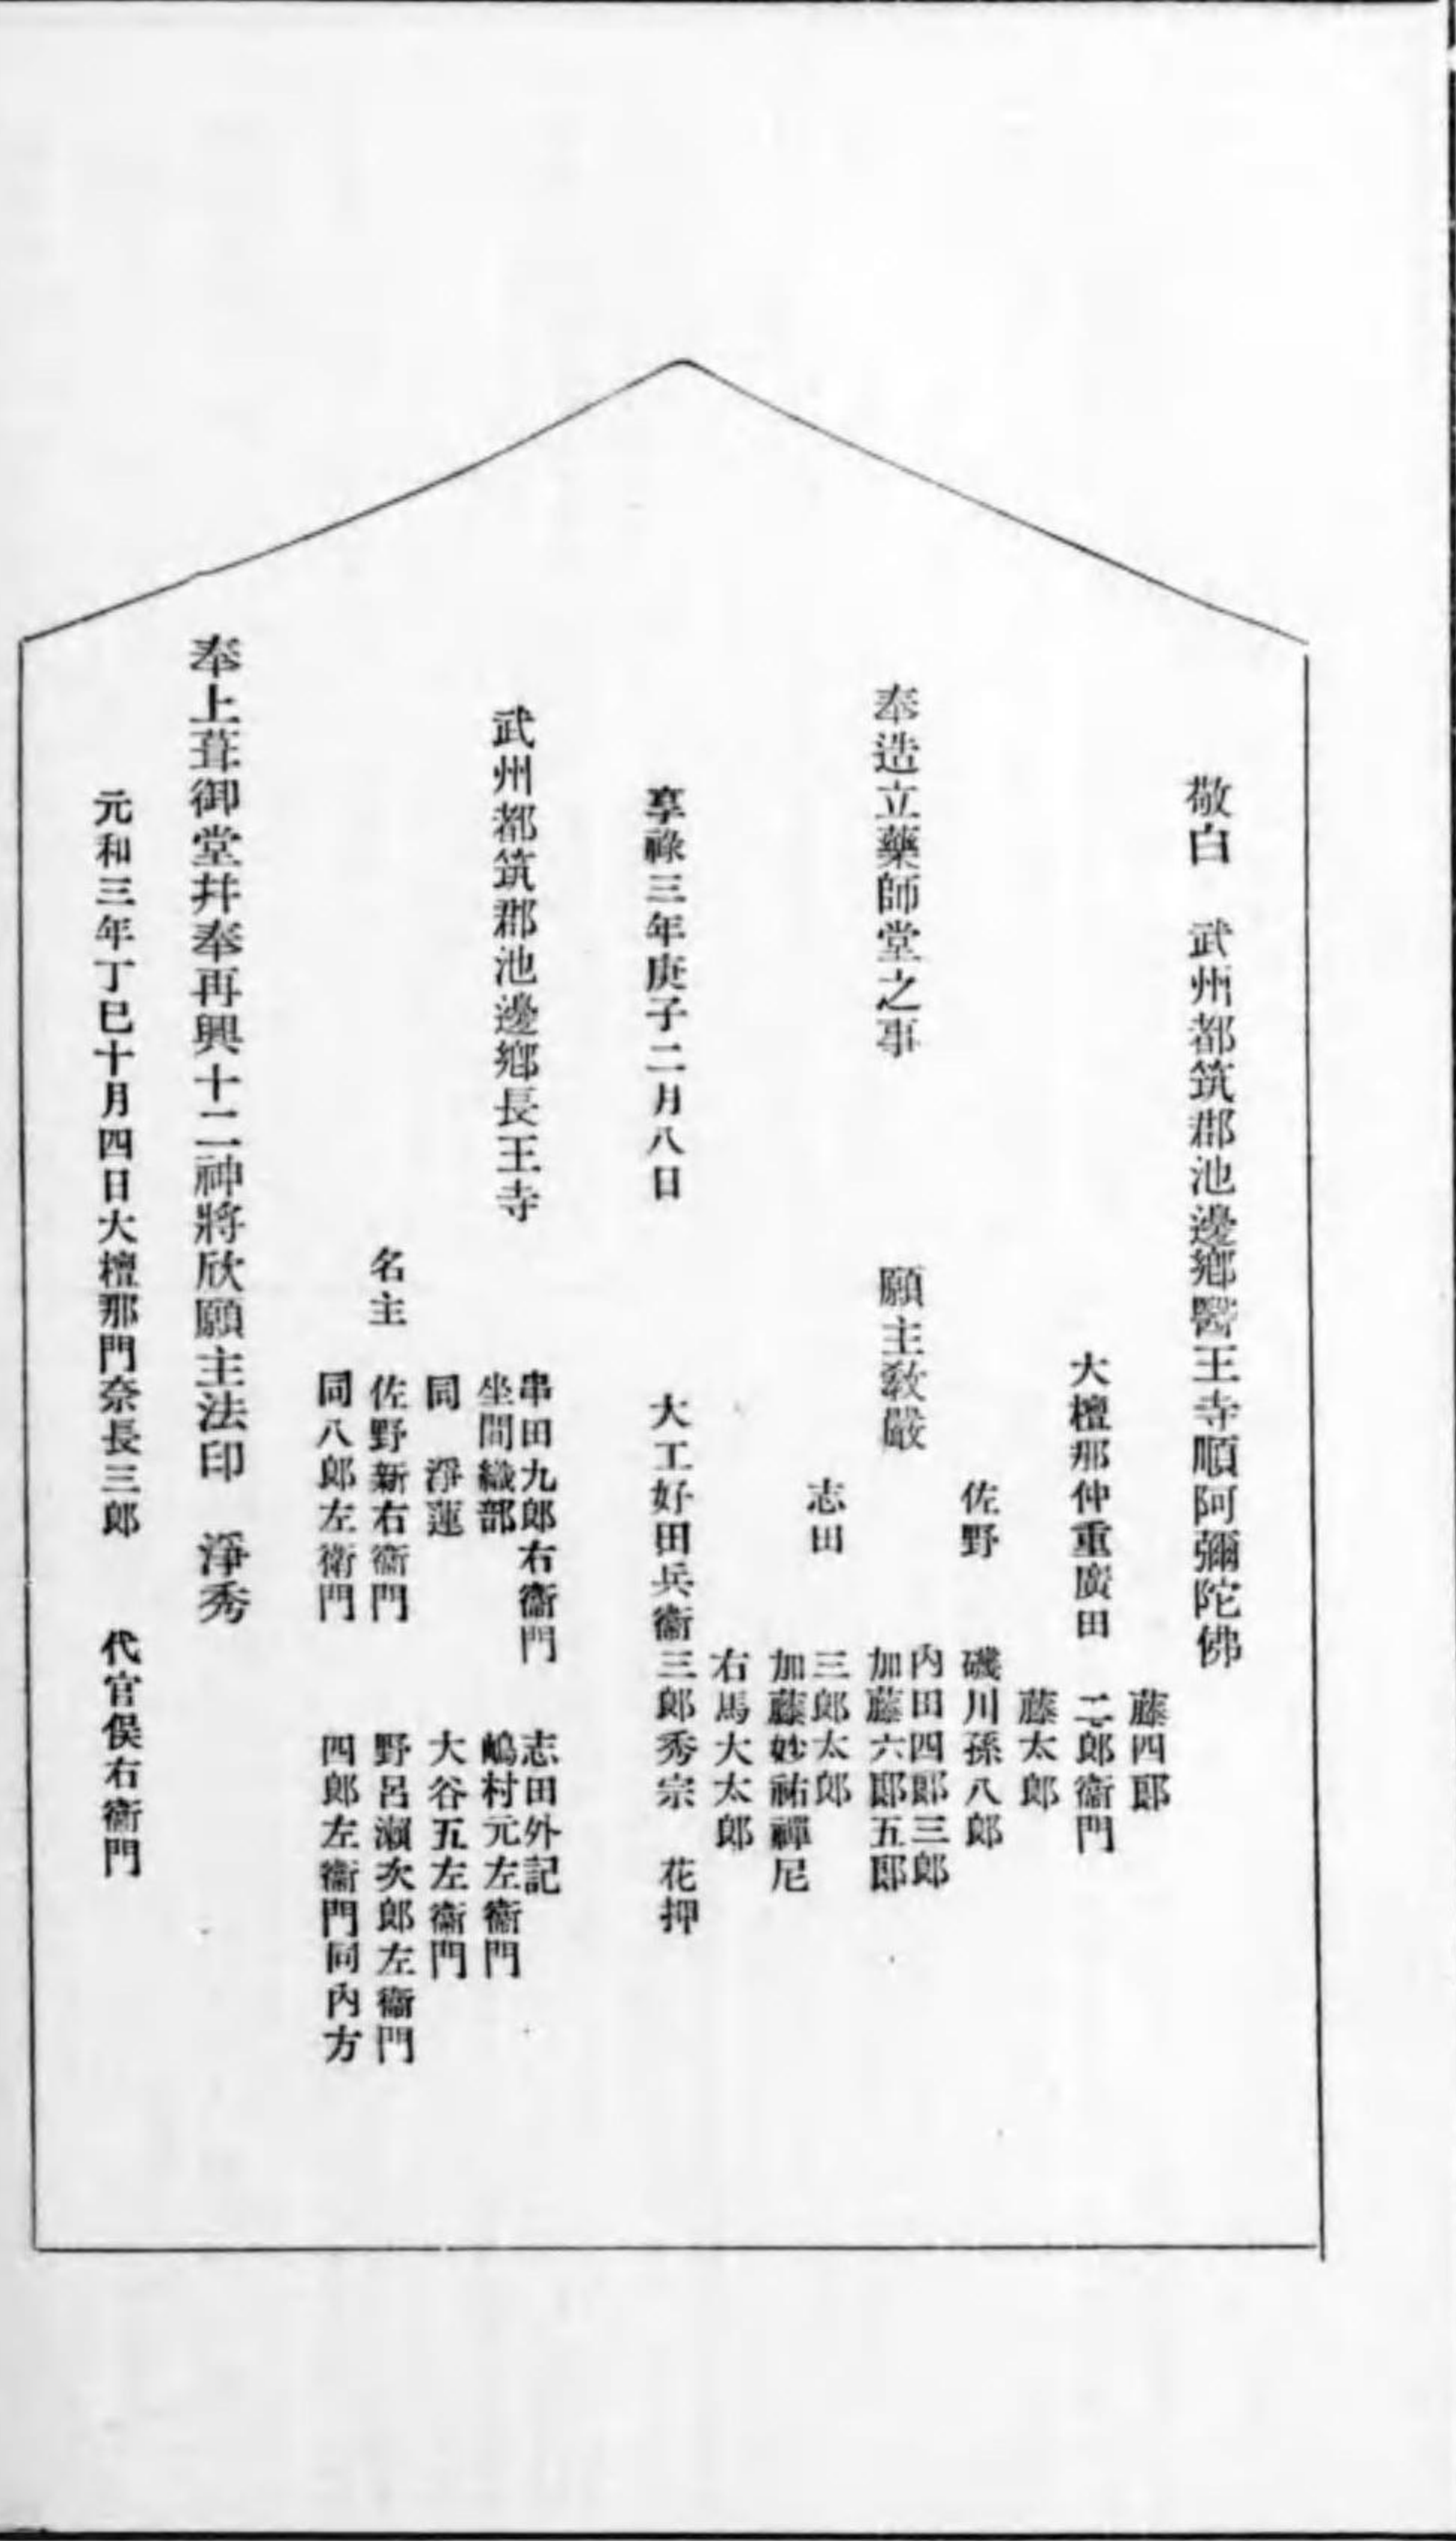 敬白　武州都筑郡池邊鄕醫王寺順阿彌陀佛
藤四郎
大檀那仲重廣田　二郎衞門
藤太郎
佐野　磯川孫八郎
內田四郎三郎
奉造立藥師堂之事　願主敎嚴　加藤六郎五郎
志田　三郎太郎
加藤妙祐禪尼
右馬大太郎
享祿三年庚子二月八日　大工好田兵衞三郎秀宗　花押
武州都筑郡池邊鄕長王寺　串田九郎右衞門　志田外記
坐間織部　嶋村元左衞門
同　淨蓮　大谷五左衞門
名主　佐野新右衞門　野呂瀨次郎左衞門
同八郎左衞門　四郎左衞門同內方
奉上葺御堂幷奉再興十二神將欣願主法印　淨秀
元和三年丁巳十月四日大檀那門奈長三郎　代官俣右衞門